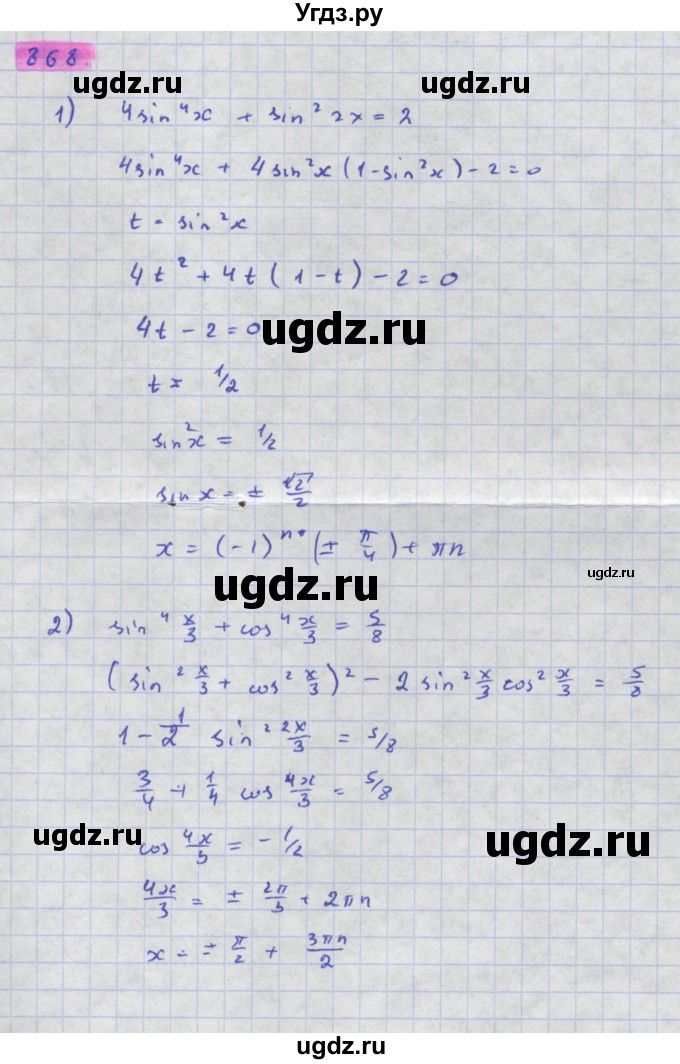 Угдз.ру
868.
ugdz.ru ugdz.ru
1) 4sin⁴x + sin²2x = 2
4sin⁴x + 4sin²x (1-sin²x) - 2 = 0
t = sin²x
4t² + 4t (1 - t) - 2 = 0
4t - 2 = 0
ugdz.ru
t = 1/2
sin²x = 1/2
sin x = ± √2/2
x = (-1)ⁿ· (± π/4) + πn
ugdz.ru
ugdz.ru
2) sin⁴ x/3 + cos⁴ x/3 = 5/8
(sin² x/3 + cos² x/3)² - 2 sin² x/3 cos² x/3 = 5/8
1 - 1/2 sin² 2x/3 = 5/8
3/4 + 1/4 cos 4x/3 = 5/8
ugdz.ru
ugdz.ru
cos 4x/3 = - 1/2
4x/3 = ± 2π/3 + 2πn
x = ± π/2 + 3πn/2
ugdz.ru